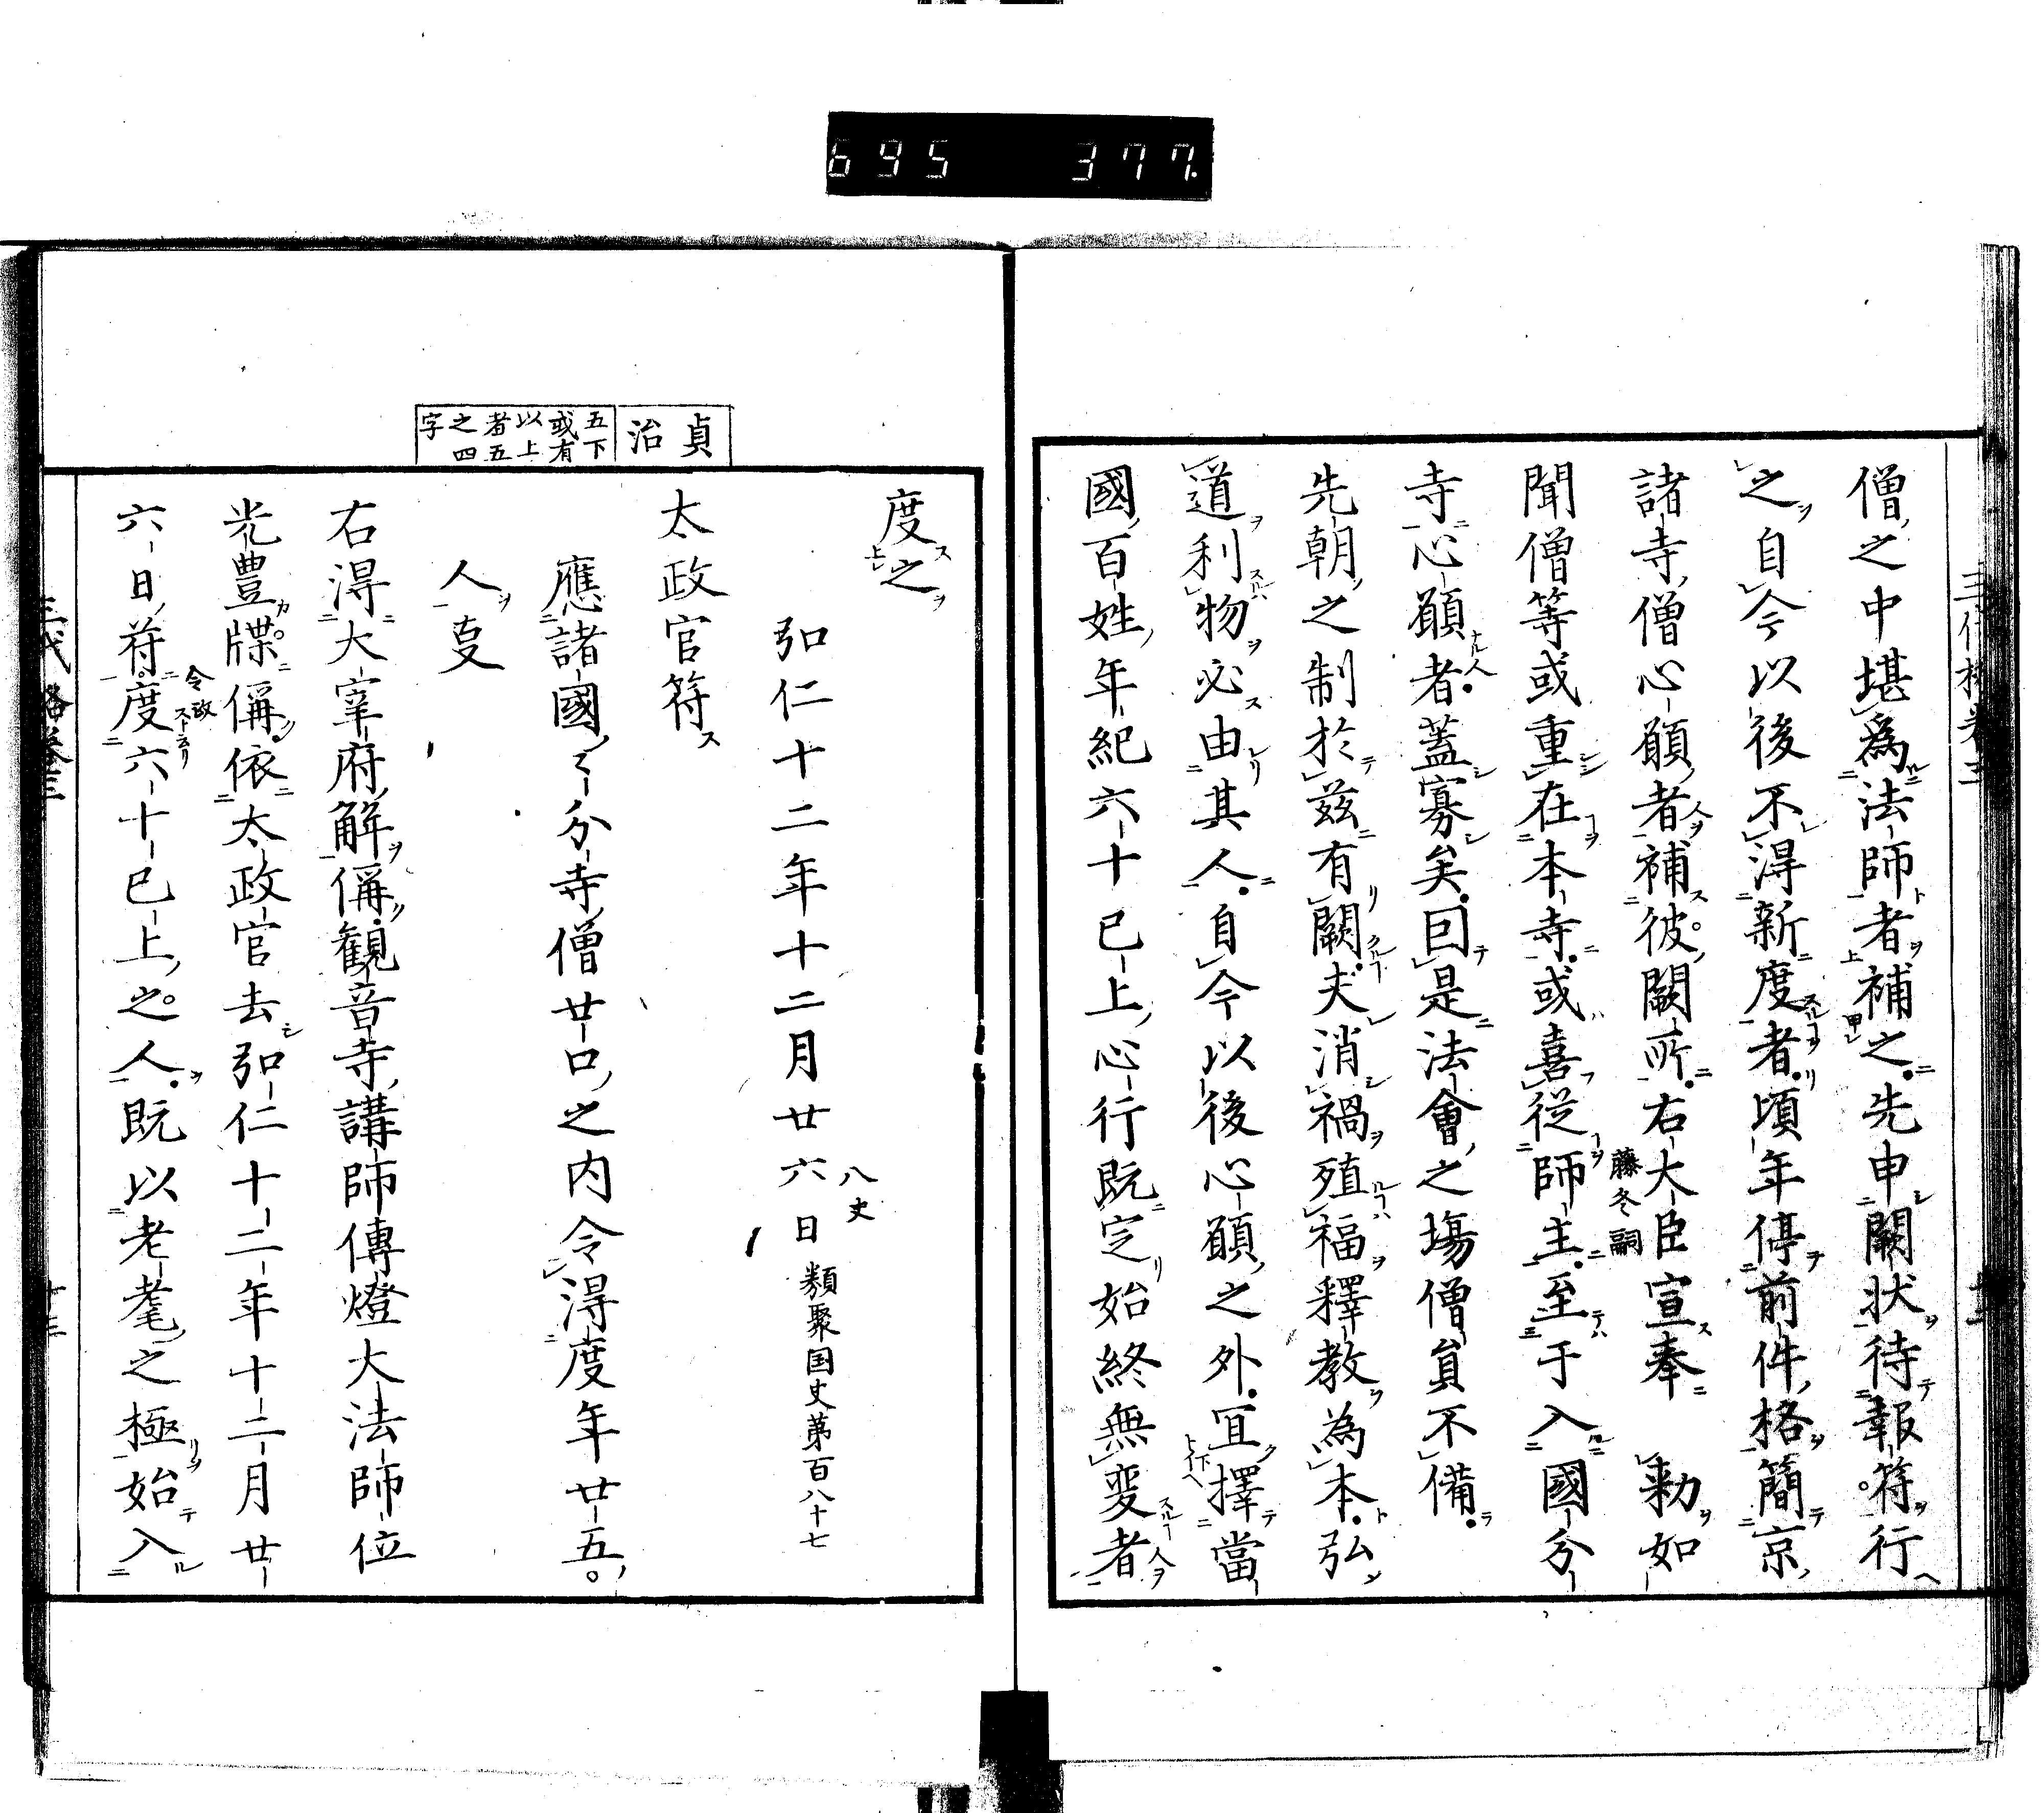 695 377.
僧之中堪爲法師者補之先申闕状待報符行
之自今以後不得新度者頃年停前件格簡京
諸寺僧心願者補彼闕所右大臣宣奉 勅如
藤冬嗣
聞僧等或重在本寺或喜従師主至于入國分
寺心願者蓋寡矣因是法會之場僧員不備
先朝之制於茲有闕夫消禍殖福釋教為本弘
道利物必由其人自今以後心願之外冝擇當
國百姓年紀六十已上心行既定始終無変者
貞治
五下或有以上者五之四字
度之
弘仁十二年十二月廿六日類聚国史第百八十七
八史
太政官符
應諸國々分寺僧廿口之内令得度年廿五
人叓
右得大宰府解偁觀音寺講師傳燈大法師位
光豊牒偁依太政官去弘仁十二年十二月廿
六日符度六十已上之人既以老耄之極始入
令政
三代格巻三